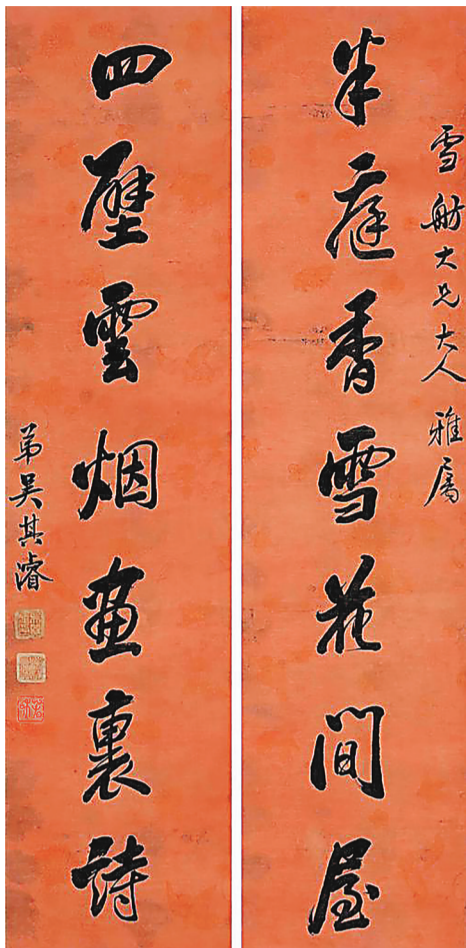 雪舫大兄大人雅属
半庭香雪花間屋
四壁雲烟畫裏詩
弟吴其濬